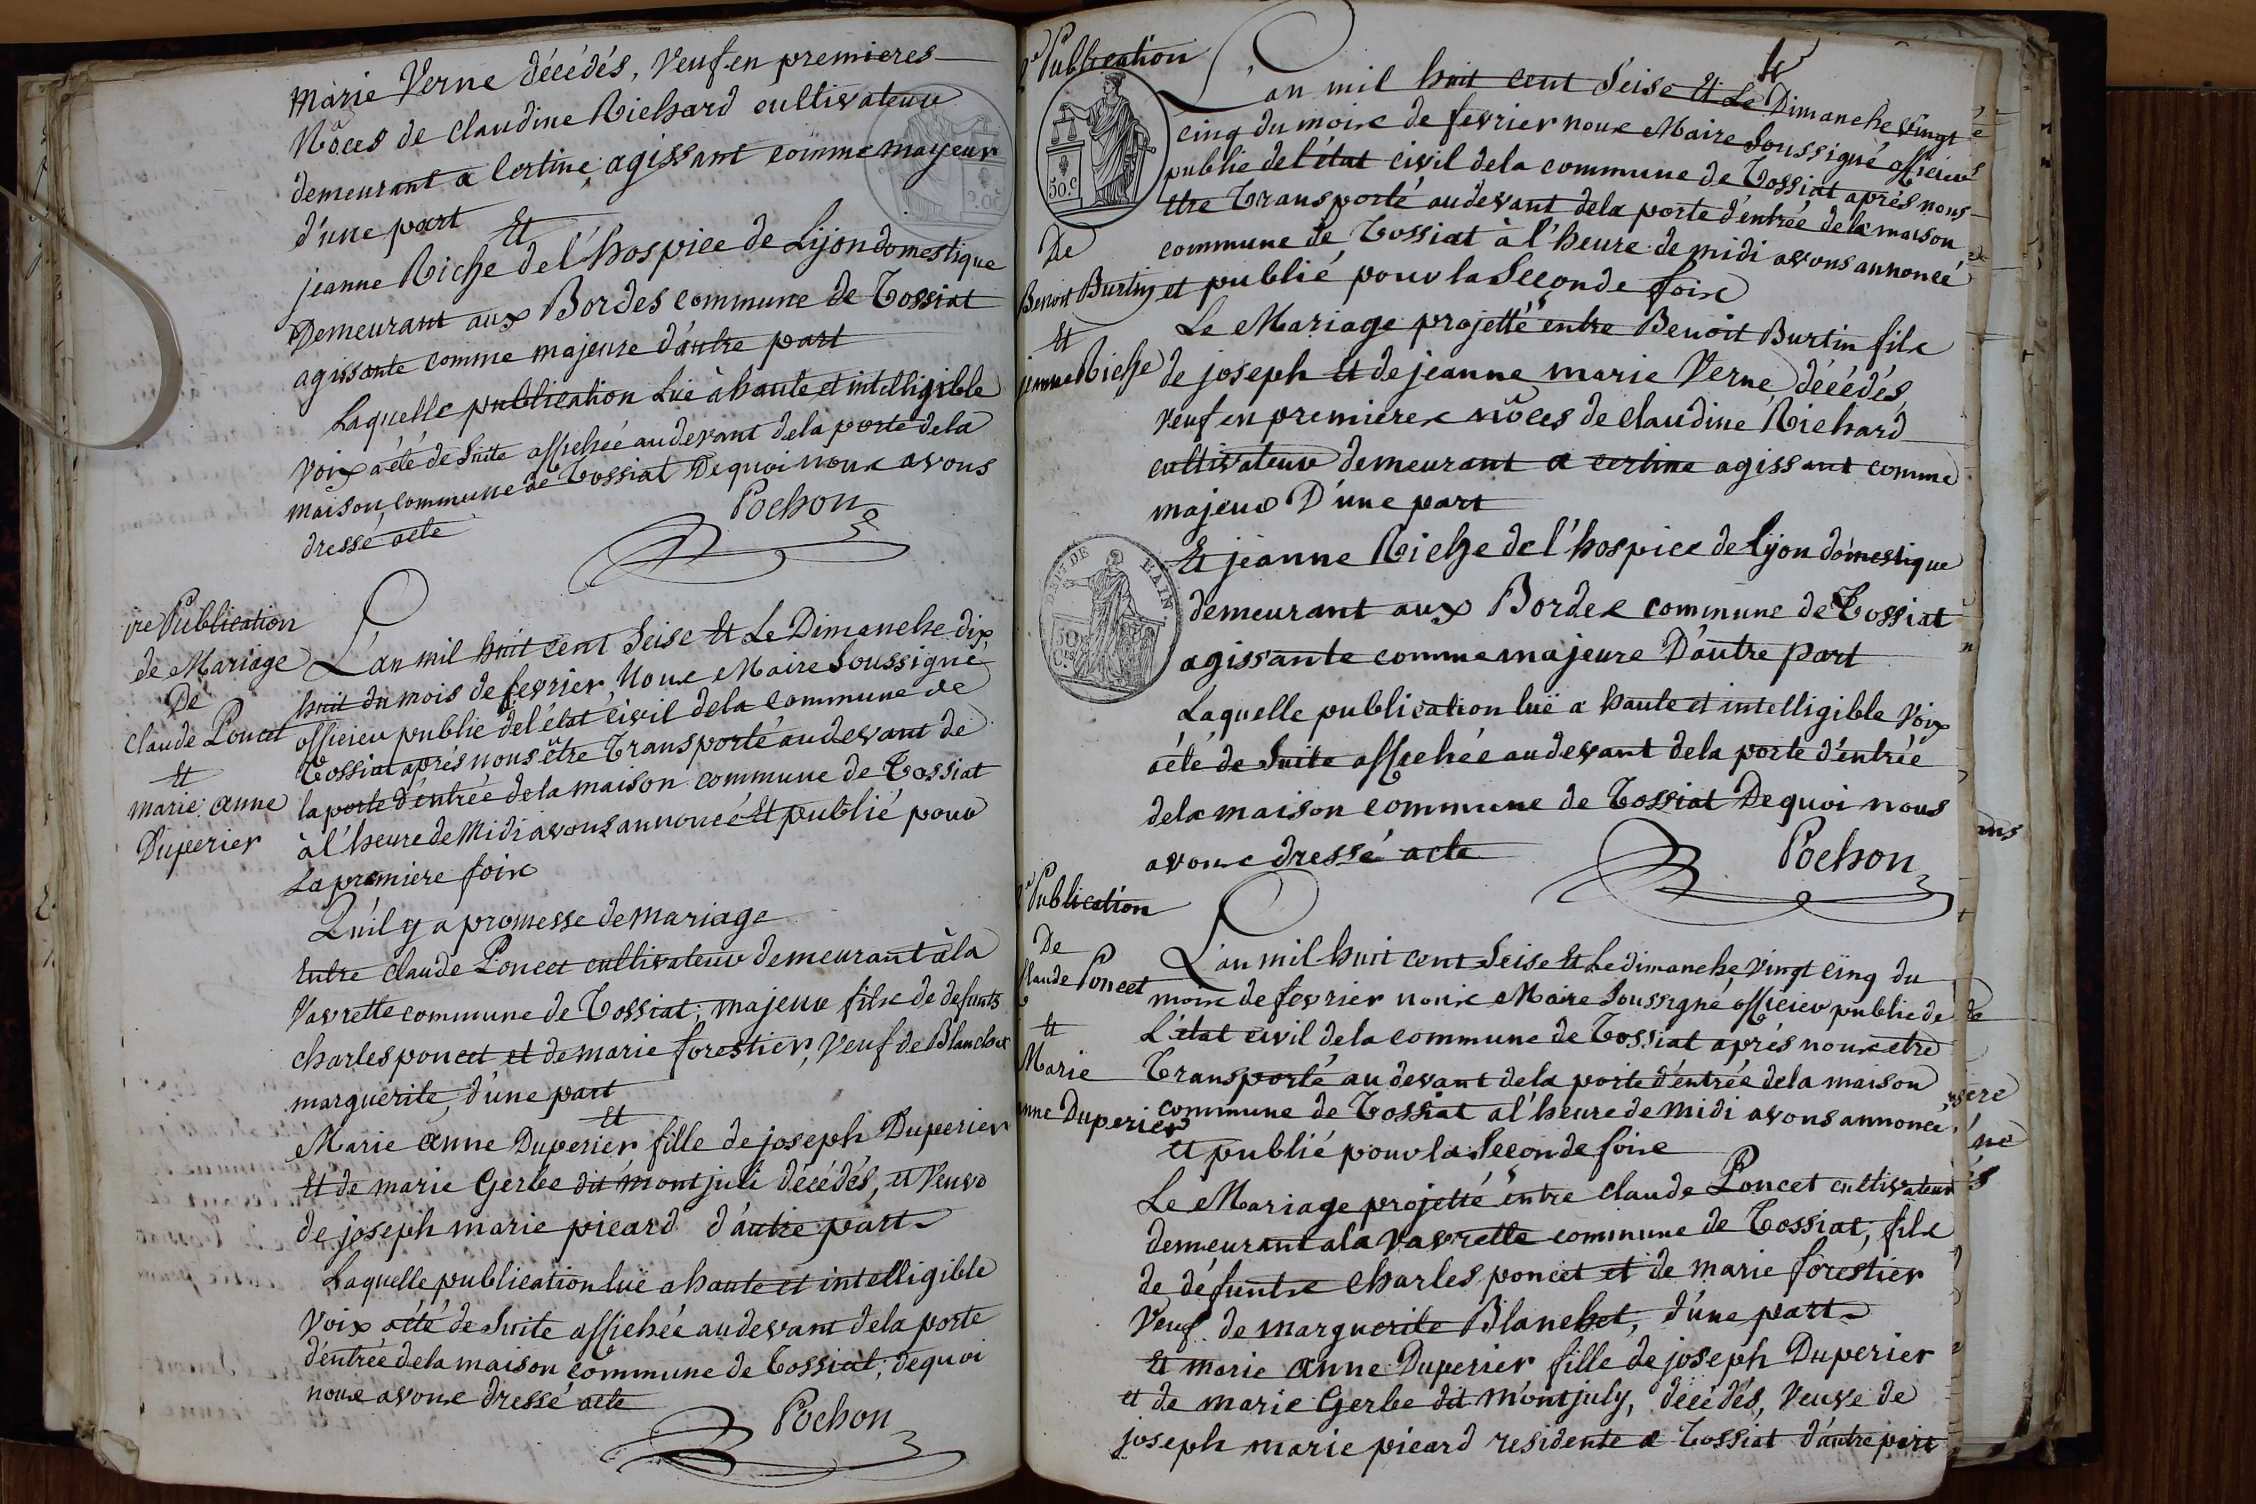 marie Verne décédés, Veuf en premieres
Nôces de claudine Richard cultivateur
demeurant a Certine agissant comme mayeur
d'une part
Et
jeanne Riche de l'hospice de Lijon domestique
Demeurant aux Bordes commune de Tossiat
agissante comme majeure d'autre part
Laquelle publication Luë à haute et intelligible
Voix a été de Suite affichée au devant de la porte de la
maison commune de Tossiat De quoi nous avons
dressé acte
Pochon
1re Publication
de Mariage
De
Claude Poncet
Et
marie anne
Duperier
L'an mil huit cent Seise Et Le Dimanche dix
huit du mois de fevrier Nous Maire Soussigné
officier public de l'état civil de la commune de
Tossiat aprés nous être Transporté au devant de
la porte d'éntrée de la maison commune de Tossiat
à l'heure de Midi avons annoncé Et publié pour
La premiere fois
Qu'il y a promesse de mariage
Entre claude Poncet cultivateur demeurant à la
Vavrette commune de Tossiat, majeur fils de defunts
charles poncet et de marie forestier, Veuf de Blanchet
marguerite, d'une part
Et
Marie anne Duperier fille de joseph Duperier
Et de marie Gerbe dit mont juli décédés, et Veuve
de joseph marie picard d'autre part
Laquelle publication luë a haute et intelligible
Voix a été de Suite affichée au devant de la porte
d'éntrée de la maison commune de Tossiat, de quoi
nous avons dressé acte
Pochon
2e Publication
50.c
De
Benoit Burtin
Et
jeanne Riche
L'an mil huit cent Seise Et Le Dimanche Vingt
cinq du mois de fevrier nous Maire Soussigné officier
public de l'état civil de la commune de Tossiat aprés nous
etre Transporté au devant de la porte d'éntrée de la maison
commune de Tossiat à l'heure de midi avons annoncé
et publié pour la Seconde fois
Le Mariage projetté entre Benoit Burtin fils
de joseph Et de jeanne marie Verne, décédés,
Veuf en premieres nôces de claudine Richard
cultivateur demeurant a certine agissant comme
majeur D'une part
Et jeanne Riche de l'hospice de Lyon domestique
demeurant aux Bordes commune de Tossiat
agissante comme majeure D'autre part
Laquelle publication luë a haute et intelligible Voix
a été de Suite affichée au devant de la porte d'éntrée
de la maison commune de Tossiat De quoi nous
avons dressé acte
Pochon
2e Publication
De
Claude Poncet
Et
Marie
anne Duperier
L'an mil huit cent Seise Et Le dimanche Vingt cinq du
mois de fevrier nous Maire Soussigné officier public de
L'état civil de la commune de Tossiat aprés nous etre
Transporté au devant de la porte d'éntrée de la maison
commune de Tossiat a l'heure de midi avons annoncé
et publié pour la Seconde fois
Le Mariage projetté entre claude Poncet cultivateur
demeurant a la Vavrette commune de Tossiat, fils
de défunts charles poncet et de marie forestier
Veuf de marguerite Blanchet, d'une part
Et marie anne Duperier fille de joseph Duperier
et de marie Gerbe dit montjuly, décédés, Veuve de
joseph marie picard residente a Tossiat d'autre part